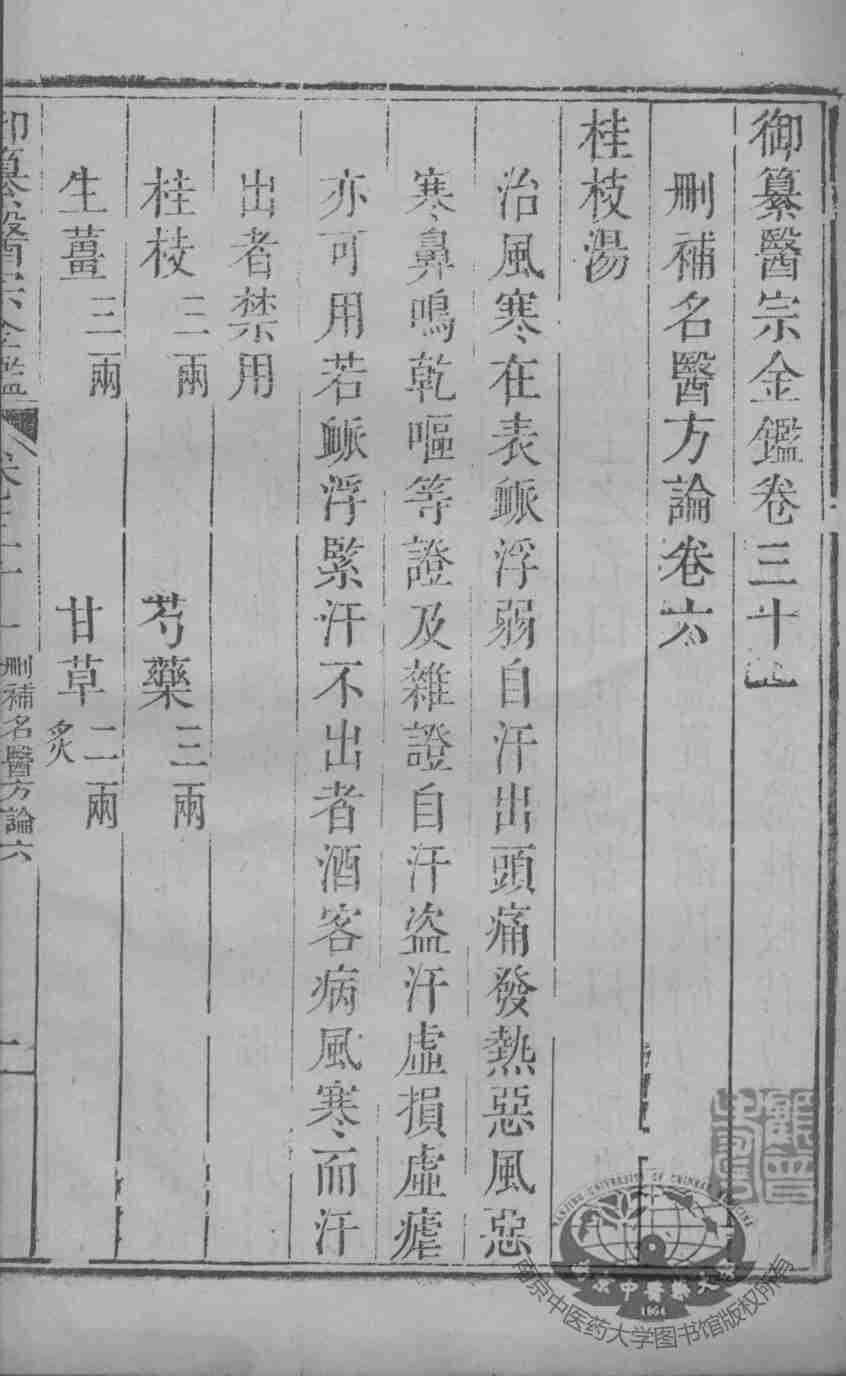 御纂醫宗金鑑卷三十
刪補名醫方論卷六
桂枝湯
治風寒在表脈浮弱自汗出頭痛發熱惡風惡
寒鼻鳴乾嘔等證及雜證自汗盜汗虛損虛瘧
亦可用若脈浮緊汗不出者酒客病風寒而汗
出者禁用
桂枝三兩 芍藥三兩
生薑三兩 甘草二兩炙
御纂醫宗金鑑 刪補名醫方論六
NANJING UNIVERSITY OF CHINESE MEDICINE
南京中醫藥大學
1954
南京中医药大学图书馆版权所有